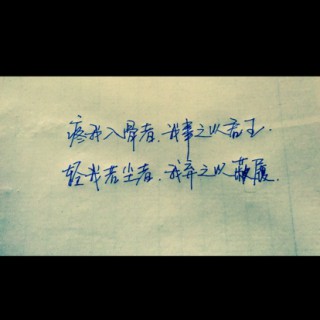 疼我入骨者.我事之以君王.
轻我若尘者.我弃之以敝履.